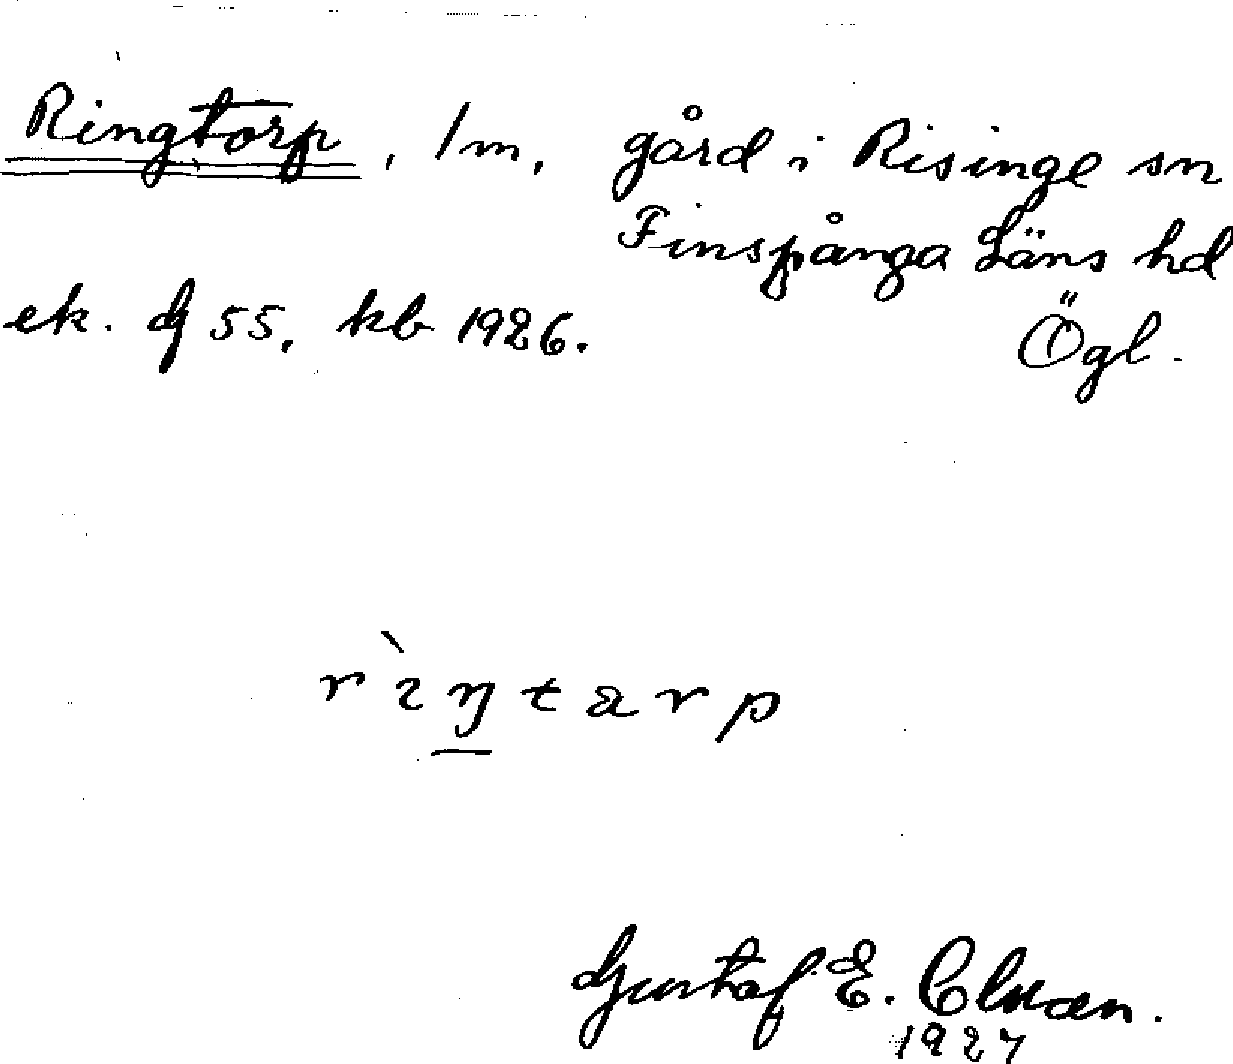 Ringtorp, 1m, gård i Risinge sn
Finspånga Läns hd
ek. dj 55. kb 1926. Ögl.
rìŋtarp
Gustaf E.
1927